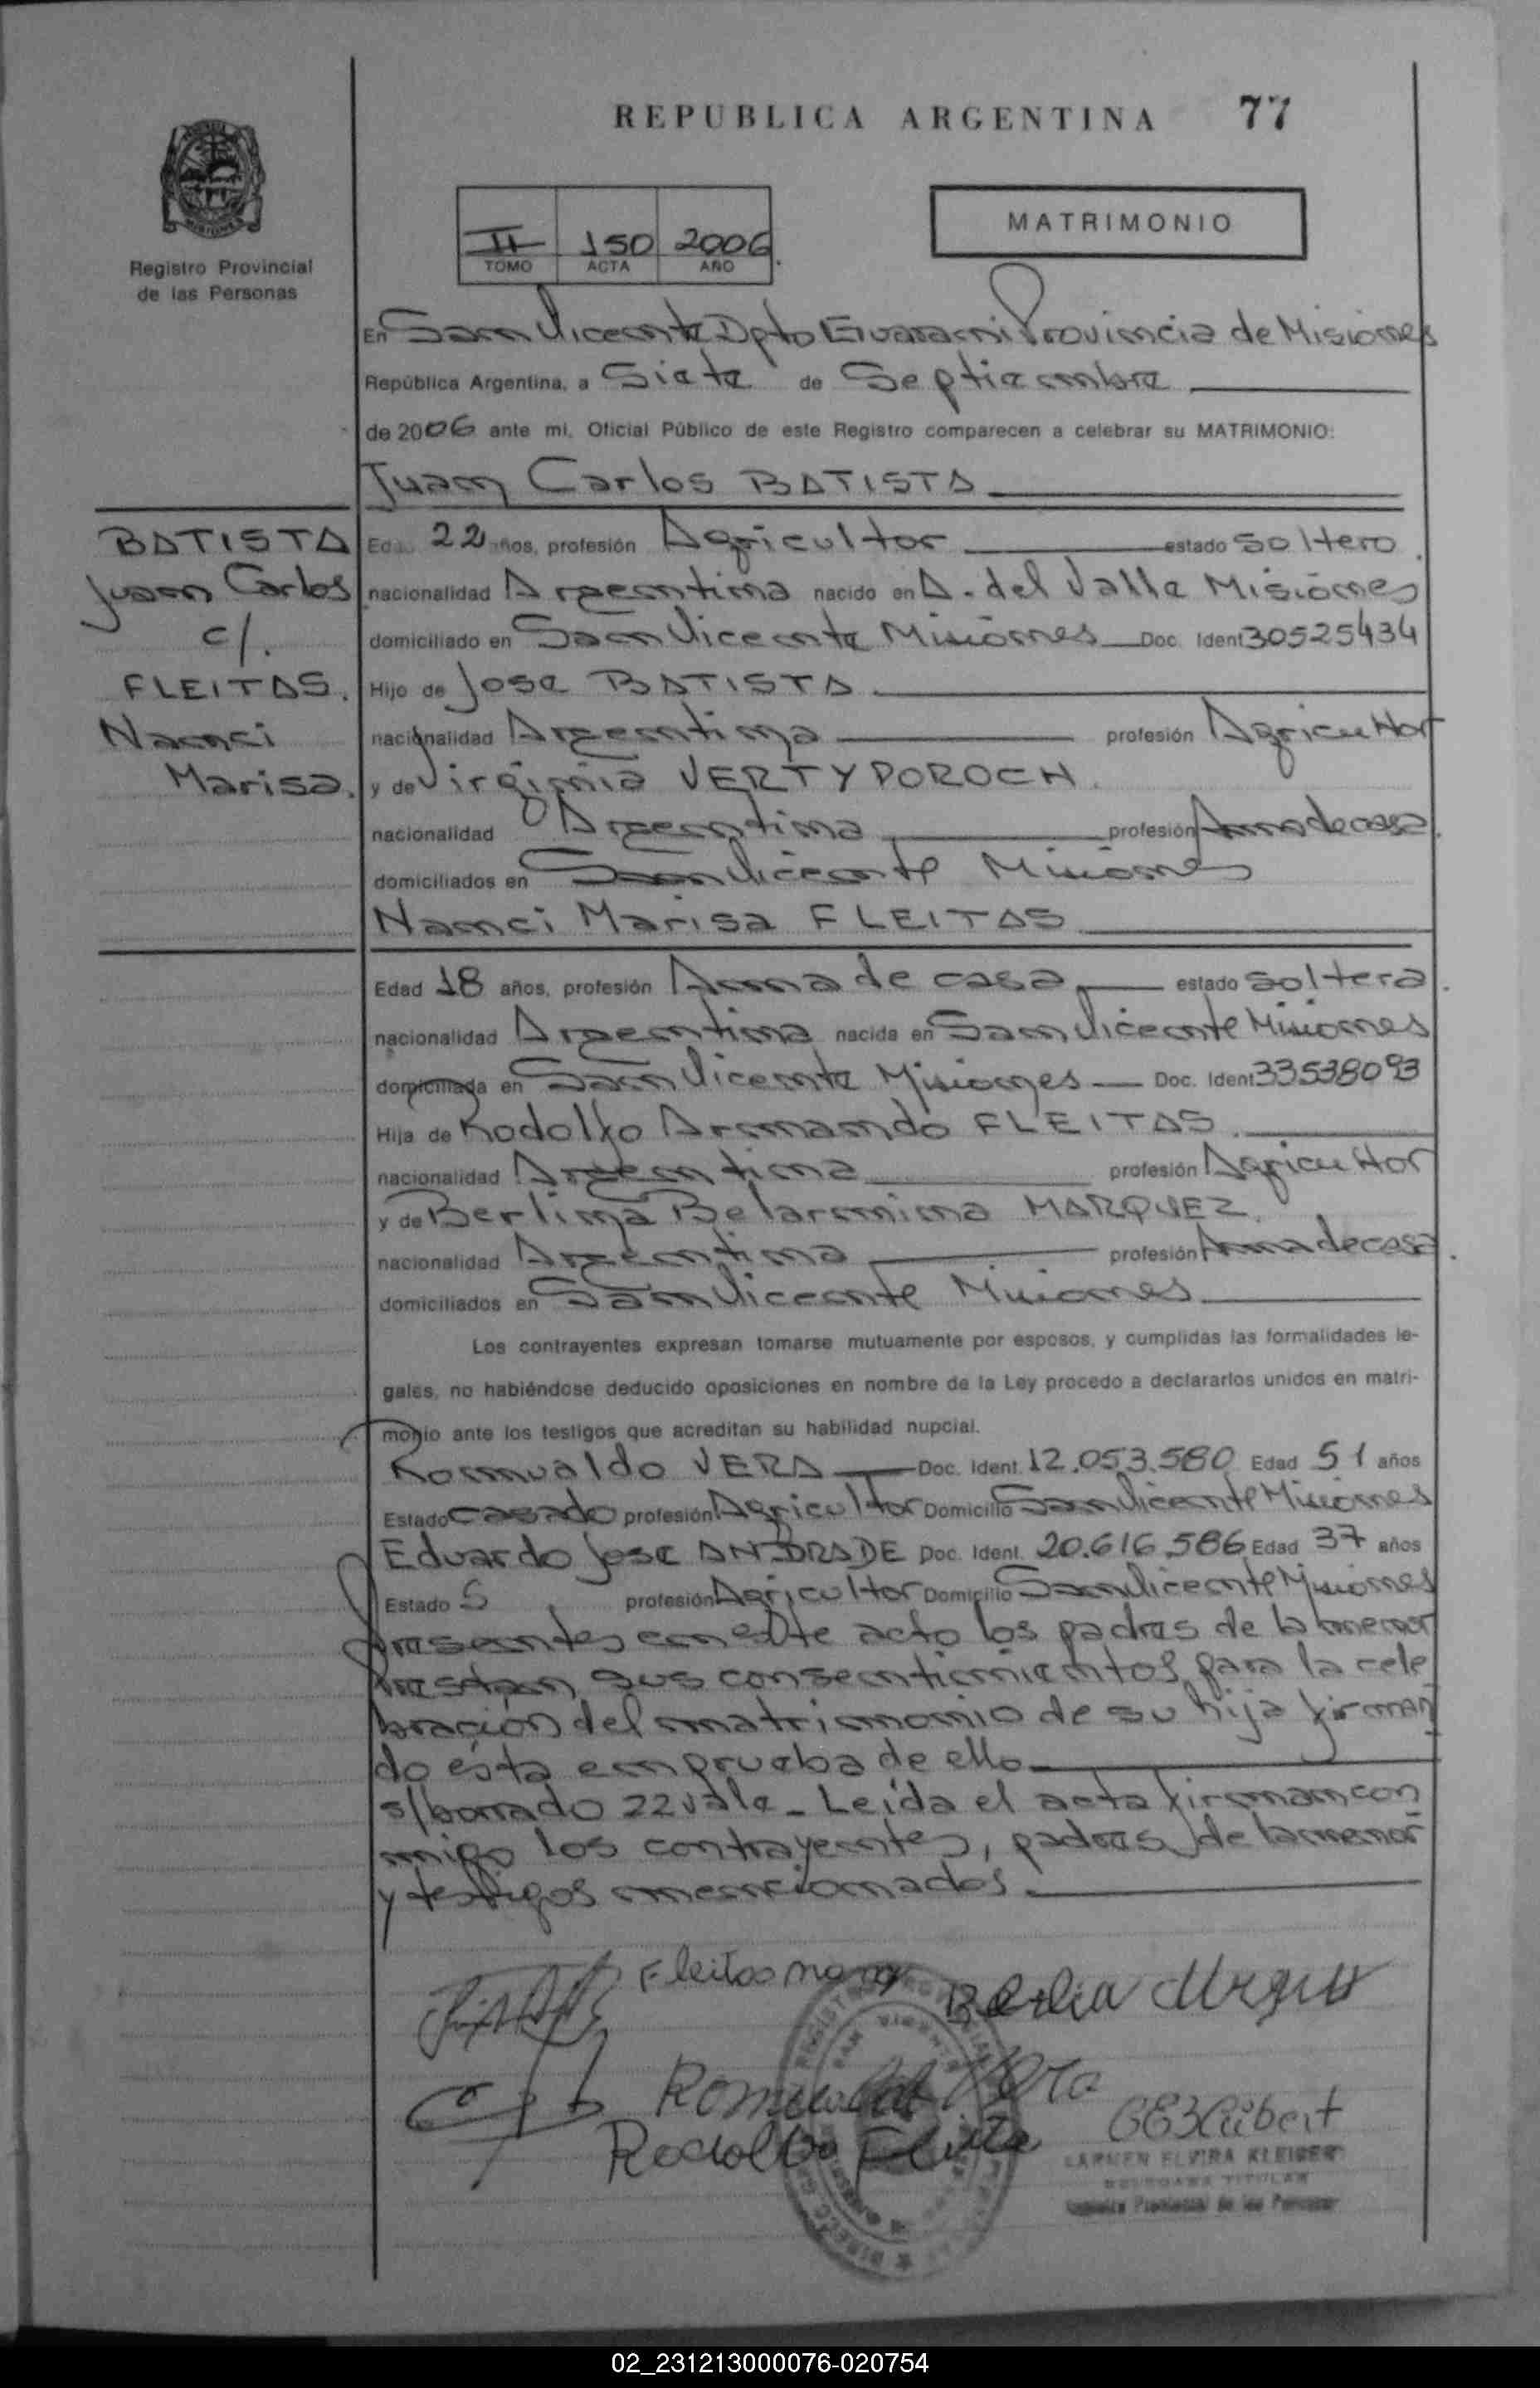 REPUBLICA ARGENTINA 77
II 150 2006
TOMO ACTA AÑO
MATRIMONIO
Registro Provincial
de las Personas
En San Vicente Dpto Guarani Provincia de Misiones
República Argentina, a Siete de Septiembre
de 2006 ante mi, Oficial Público de este Registro comparecen a celebrar su MATRIMONIO:
Juan Carlos BATISTA
BATISTA
Juan Carlos
c/.
FLEITAS.
Nanci
Marisa.
Edad 22 años, profesión Agricultor estado soltero
nacionalidad Argentina nacido en A. del Valle Misiones
domiciliado en San Vicente Misiones Doc. Ident 30525434
Hijo de Jose BATISTA
nacionalidad Argentina profesión Agricultor
y de Virginia VERTYPOROCH.
nacionalidad Argentina profesión Ama de casa.
domiciliados en San Vicente Misiones
Nanci Marisa FLEITAS
Edad 18 años, profesión Ama de casa estado soltera.
nacionalidad Argentina nacida en San Vicente Misiones
domiciliada en San Vicente Misiones Doc. Ident 33538093
Hija de Rodolfo Armando FLEITAS
nacionalidad Argentina profesión Agricultor
y de Berlina Belarmina MARQUEZ.
nacionalidad Argentina profesión Ama de casa.
domiciliados en San Vicente Misiones
Los contrayentes expresan tomarse mutuamente por esposos, y cumplidas las formalidades le-
gales, no habiéndose deducido oposiciones en nombre de la Ley procedo a declararlos unidos en matri-
monio ante los testigos que acreditan su habilidad nupcial.
Romualdo VERA Doc. Ident. 12.053.580 Edad 51 años
Estado casado profesión Agricultor Domicilio San Vicente Misiones
Eduardo Jose ANDRADE Doc. Ident. 20.616.586 Edad 37 años
Estado S profesión Agricultor Domicilio San Vicente Misiones
Presentes en este acto los padres de la menor
prestan sus consentimientos para la cele
bracion del matrimonio de su hija firman
do ésta en prueba de ello
s/borrado 22 vale - Leída el acta firman con
migo los contrayentes, padres de la menor
y testigos mencionados.
Fleitas
Romualdo Vera
Rodolfo
CARMEN ELVIRA KLEIBERT
Registro Provincial de las Personas
02_231213000076-020754